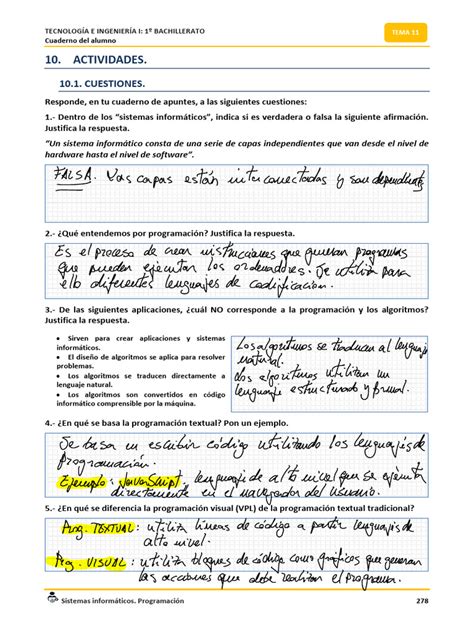 TECNOLOGÍA E INGENIERÍA I: 1º BACHILLERATO
Cuaderno del alumno
TEMA 11
10. ACTIVIDADES.
10.1. CUESTIONES.
Responde, en tu cuaderno de apuntes, a las siguientes cuestiones:
1.- Dentro de los “sistemas informáticos”, indica si es verdadera o falsa la siguiente afirmación.
Justifica la respuesta.
“Un sistema informático consta de una serie de capas independientes que van desde el nivel de
hardware hasta el nivel de software”.
FALSA. Las capas están interconectadas y son dependientes
2.- ¿Qué entendemos por programación? Justifica la respuesta.
Es el proceso de crear instrucciones que generan programas
que pueden ejecutar los ordenadores. Se utiliza para
ello diferentes lenguajes de codificación.
3.- De las siguientes aplicaciones, ¿cuál NO corresponde a la programación y los algoritmos?
Justifica la respuesta.
• Sirven para crear aplicaciones y sistemas
informáticos.
• El diseño de algoritmos se aplica para resolver
problemas.
• Los algoritmos se traducen directamente a
lenguaje natural.
• Los algoritmos son convertidos en código
informático comprensible por la máquina.
Los algoritmos se traducen al lenguaje
natural.
Los algoritmos utilizan un
lenguaje estructurado y formal.
4.- ¿En qué se basa la programación textual? Pon un ejemplo.
Se basa en escribir código utilizando los lenguajes de
programación.
Ejemplo: JavaScript. lenguaje de alto nivel que se ejecuta
directamente en el navegador del usuario.
5.- ¿En qué se diferencia la programación visual (VPL) de la programación textual tradicional?
Prog. TEXTUAL: utiliza líneas de código a partir lenguajes de
alto nivel.
Prog. VISUAL: utiliza bloques de código como gráficos que generan
las acciones que debe realizar el programa.
Sistemas informáticos. Programación
278